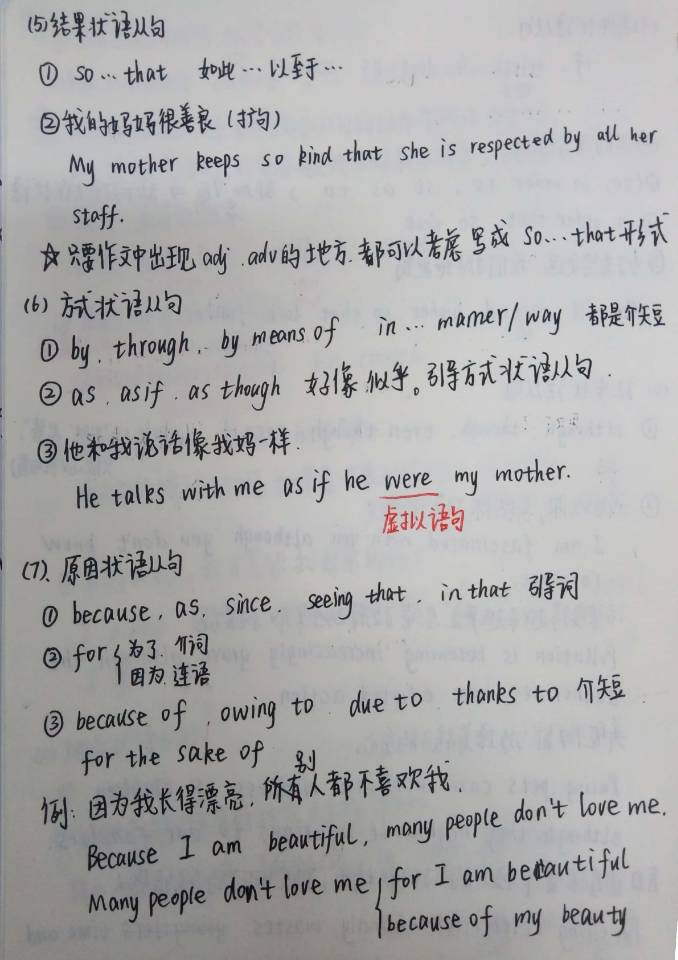 (5)结果状语从句
① so…that 如此…以至于…
②我的妈妈很善良(扩句)
My mother keeps so kind that she is respected by all her
staff.
☆只要作文中出现 adj .adv的地方.都可以考虑写成 so…that形式
(6) 方式状语从句
① by. through, by means of in … manner/way 都是介短
② as. as if. as though 好像.似乎。引导方式状语从句.
③他和我说话像我妈一样.
He talks with me as if he were my mother.
虚拟语句
(7). 原因状语从句
① because, as, since. seeing that. in that 引导词
② for { 为了 介词
因为 连语
③ because of , owing to due to thanks to 介短
for the sake of
例: 因为我长得漂亮, 所有别人都不喜欢我.
Because I am beautiful, many people don't love me.
Many people don't love me for I am beautiful
because of my beauty